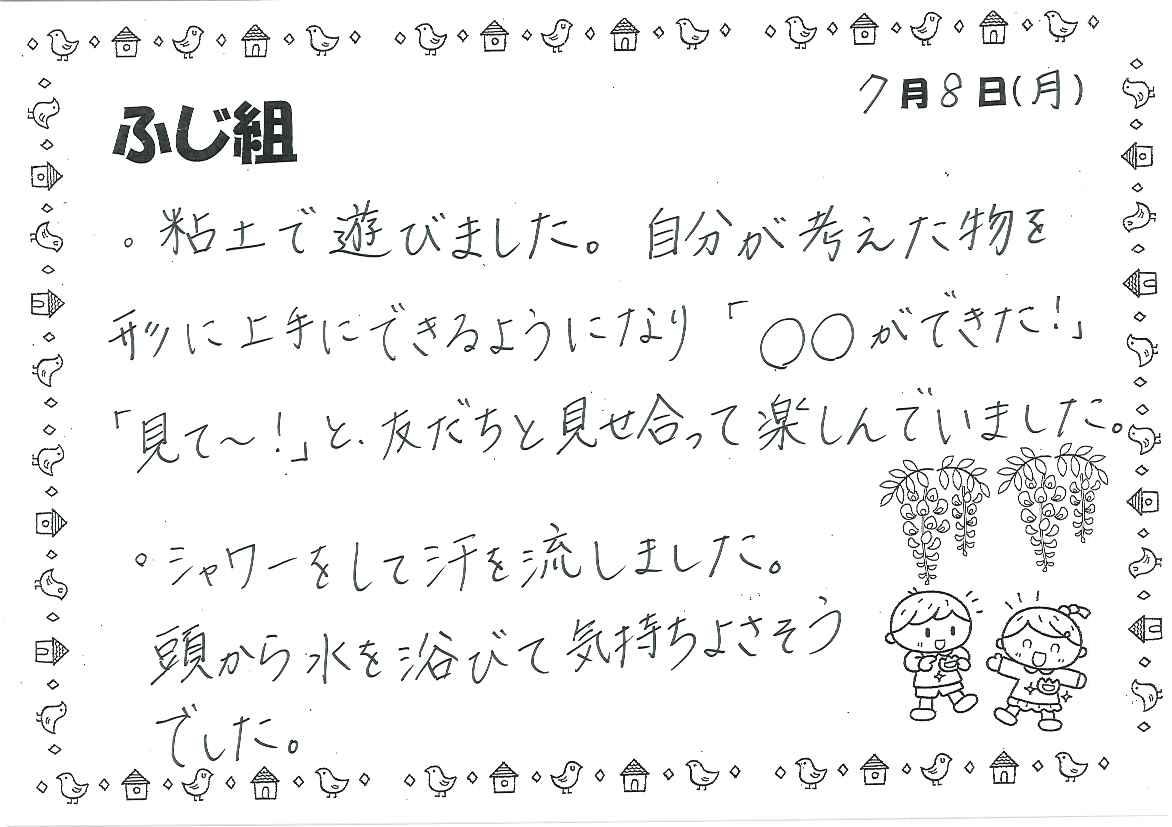 7月8日(月)
ふじ組
。粘土で遊びました。自分が考えた物を
形に上手にできるようになり「〇〇ができた!」
「見て～!」と、友だちと見せ合って楽しんでいました。
。シャワーをして汗を流しました。
頭から水を浴びて気持ちよさそう
でした。